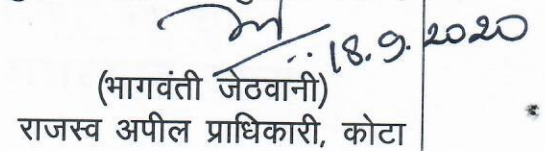 18.9.2020
(भागवंती जेठवानी)
राजस्व अपील प्राधिकारी, कोटा